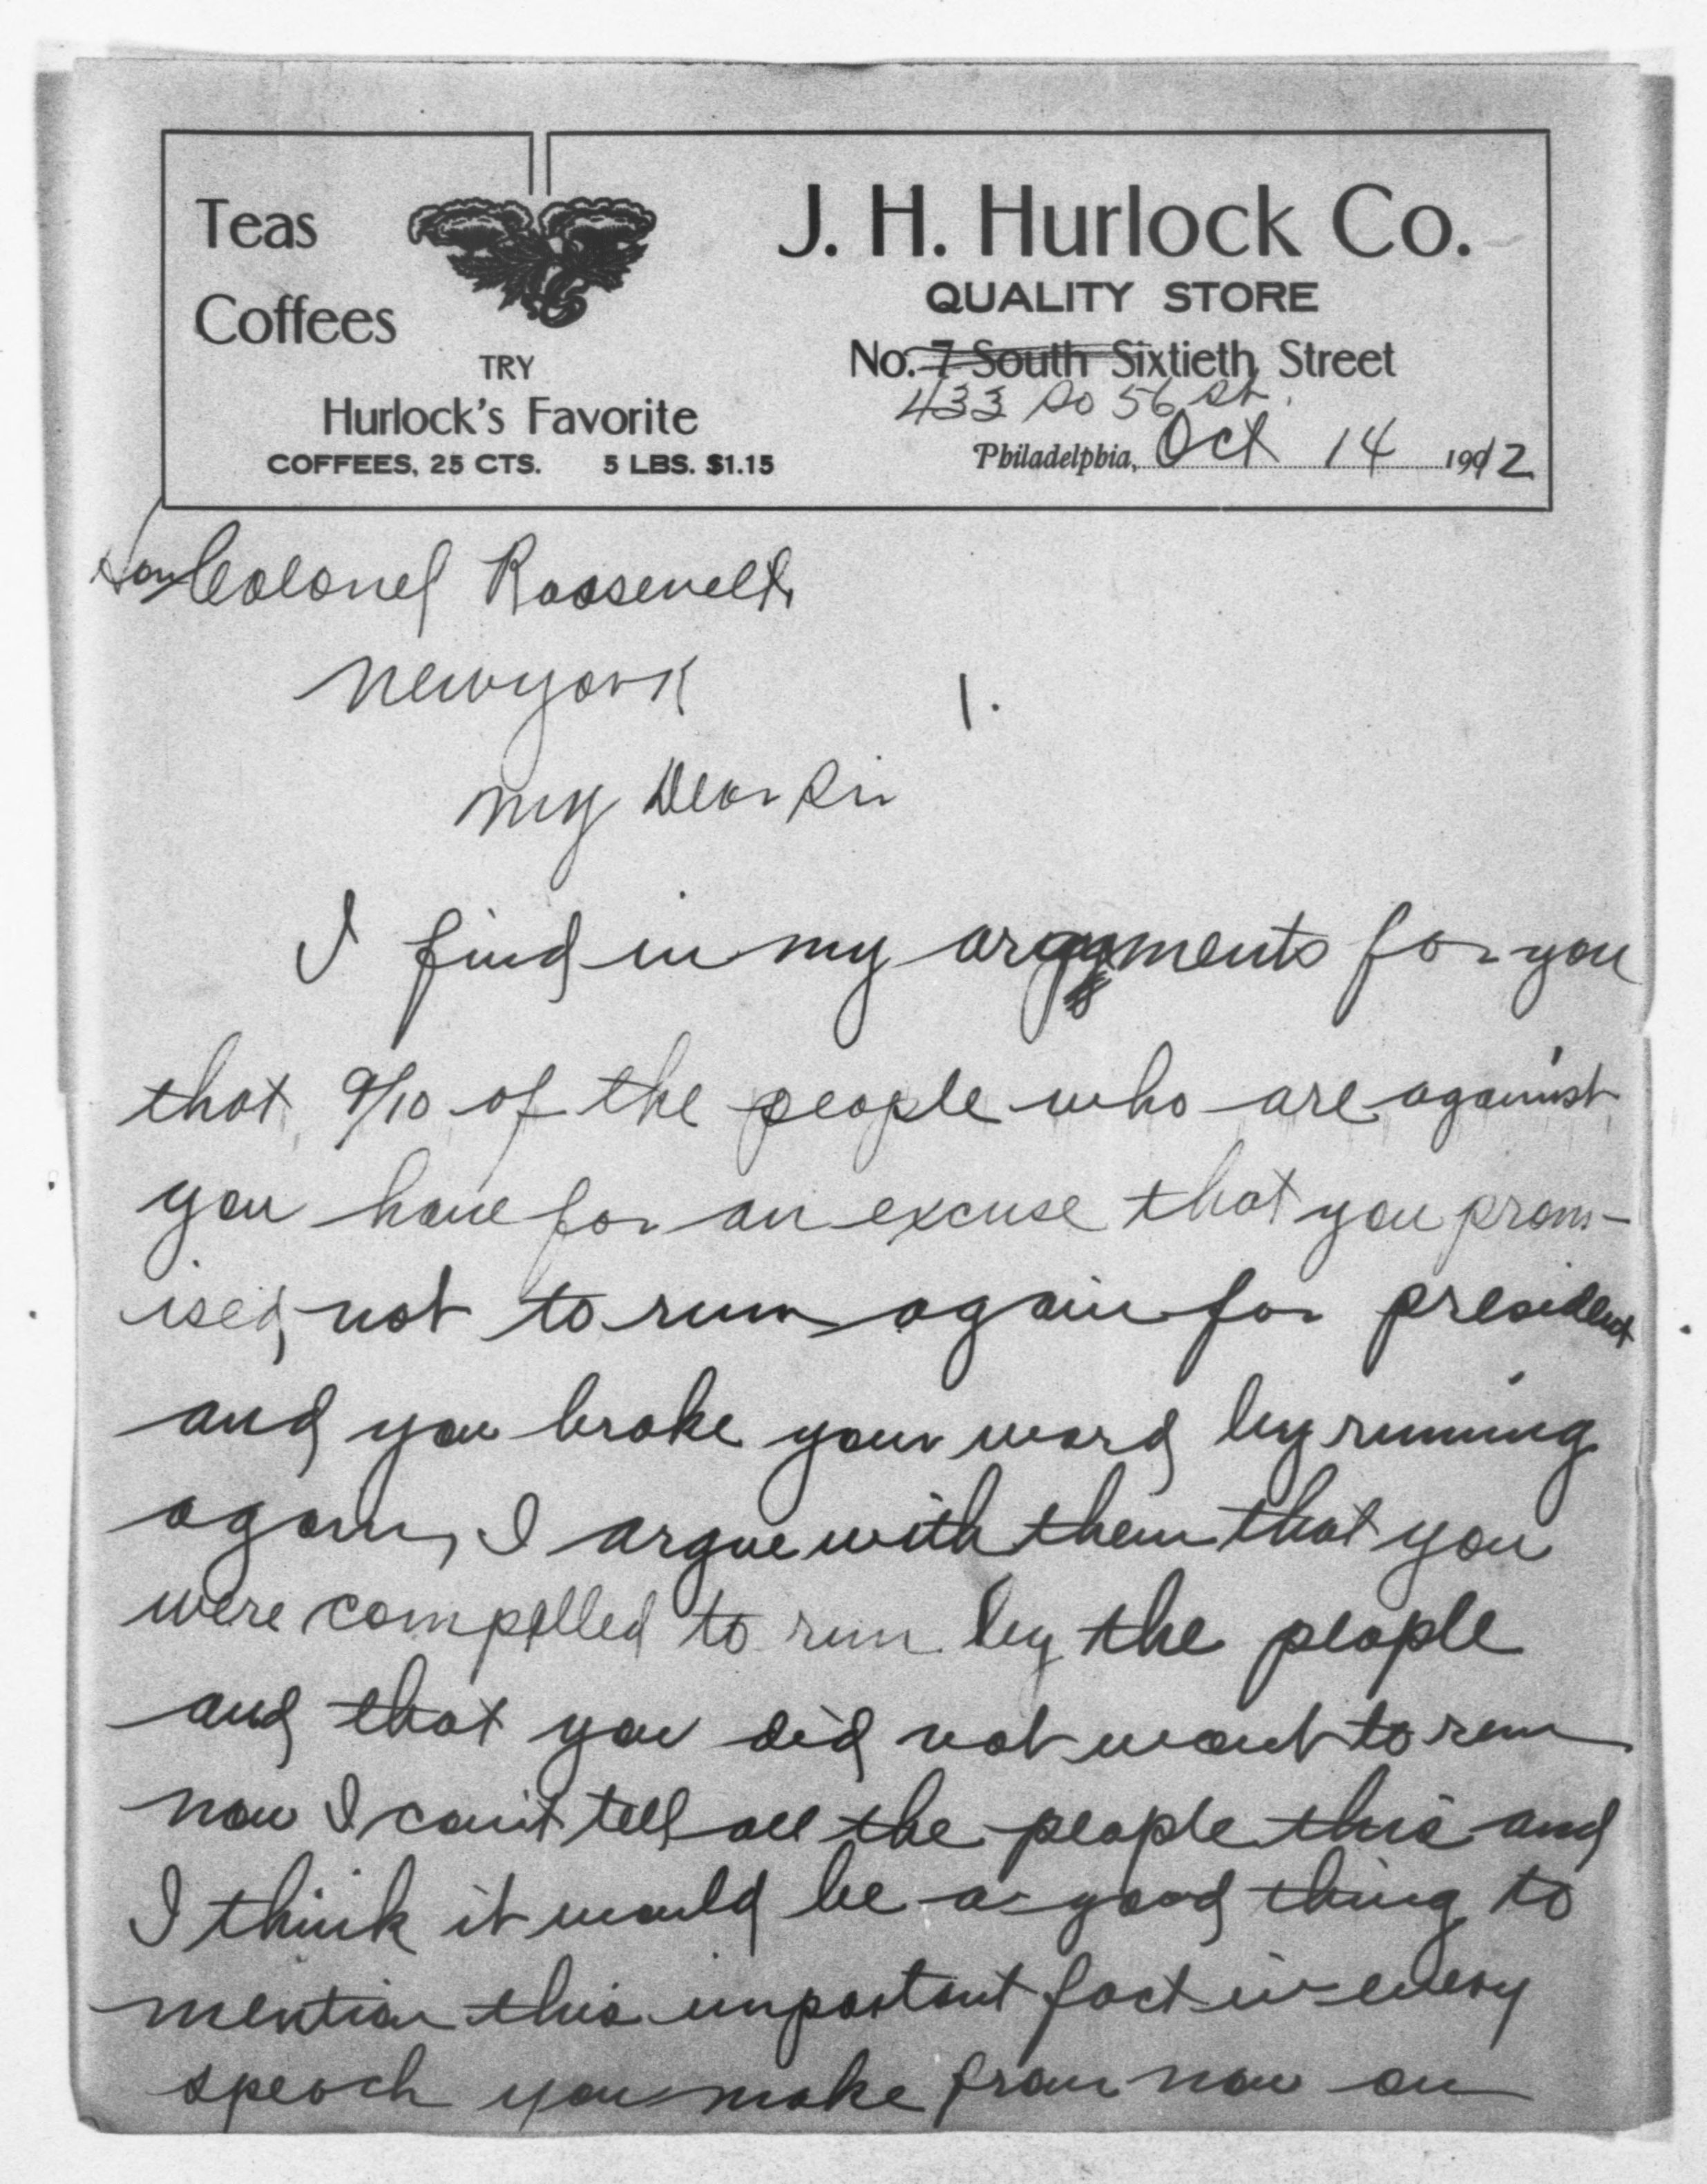 Teas
Coffees
TRY
Hurlock's Favorite
COFFEES, 25 CTS. 5 LBS. $1.15
J. H. Hurlock Co.
QUALITY STORE
No. 7 South Sixtieth Street
433 So 56 St.
Philadelphia, Oct 14 1912
Hon Colonel Roosevelt
Newyork
1.
My Dear Sir
I find in my arguments for you
that 9/10 of the people who are against
you have for an excuse that you prom-
ised not to run again for president
and you broke your word by running
again, I argue with them that you
were compelled to run by the people
and that you did not want to run
now I can't tell all the people this and
I think it would be a good thing to
mention this important fact in every
speach you make from now on